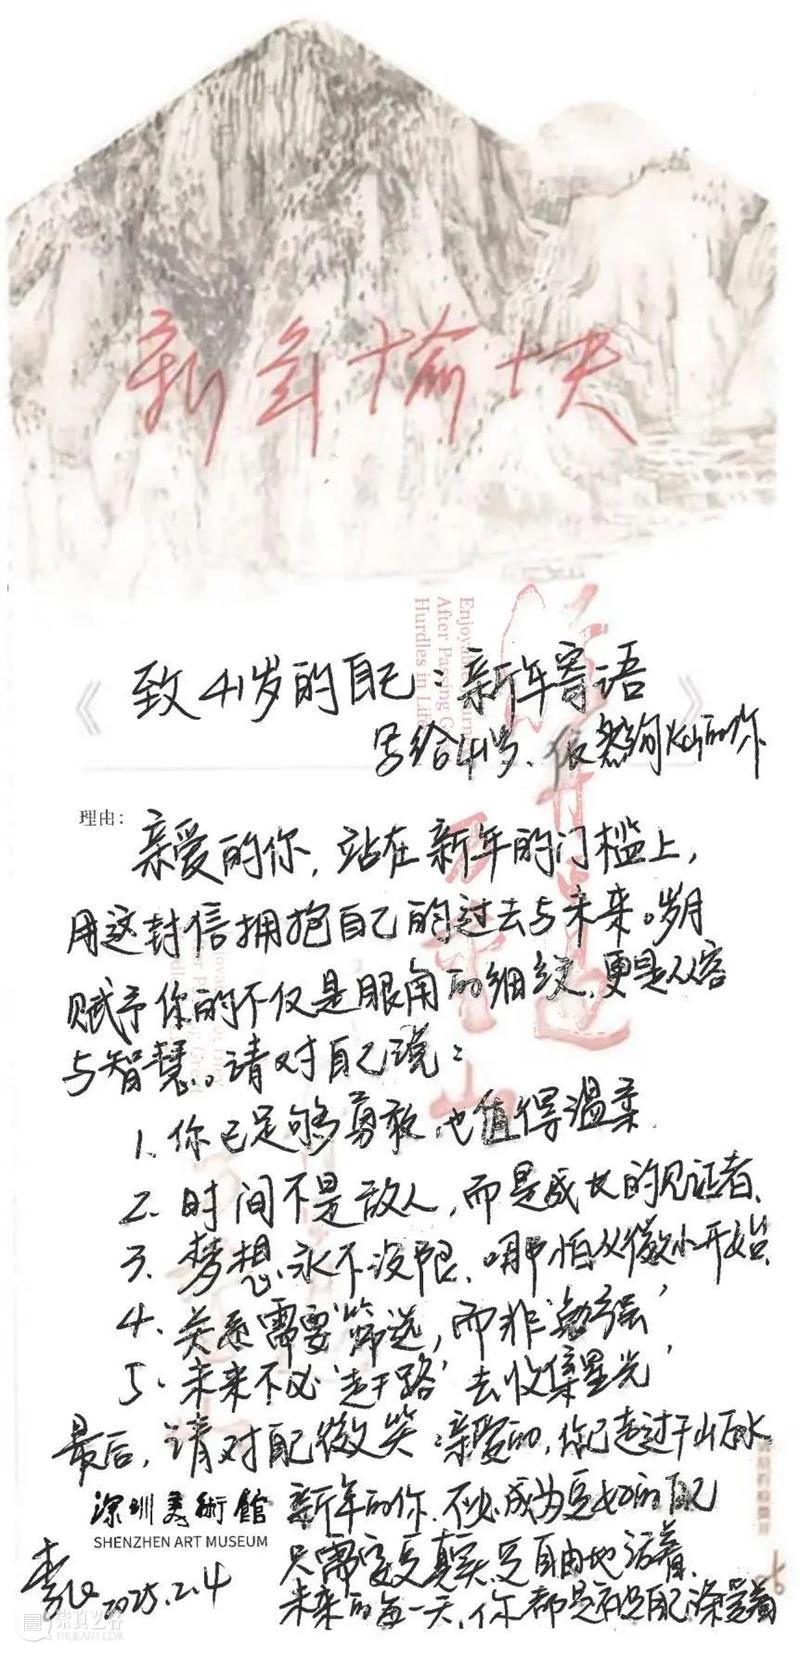 新年愉快
Enjoy
After Passing G
Hurdles in Life
《 》
致41岁的自己：新年寄语
写给41岁、依然向的你
理由：
亲爱的你，站在新年的门槛上，
用这封信拥抱自己的过去与未来。岁月
赋予你的不仅是眼角的细纹，更是从容
与智慧。请对自己说：
1、你已足够勇敢，也值得温柔.
2、时间不是敌人，而是成长的见证者、
3、梦想永不设限、哪怕从微小开始、
4、关系需要"筛选，而非"勉强"
5、未来不必"赶路"去收集星光"
最后，请对自己微笑：亲爱的，你已走过千山万水
新年的你、不必成为更好的自己
只需要更真实、更自由地活着、
未来的每一天、你都是自己
深圳美術館
SHENZHEN ART MUSEUM
李 2025.2.4
崇真艺客
TRUEART.COM